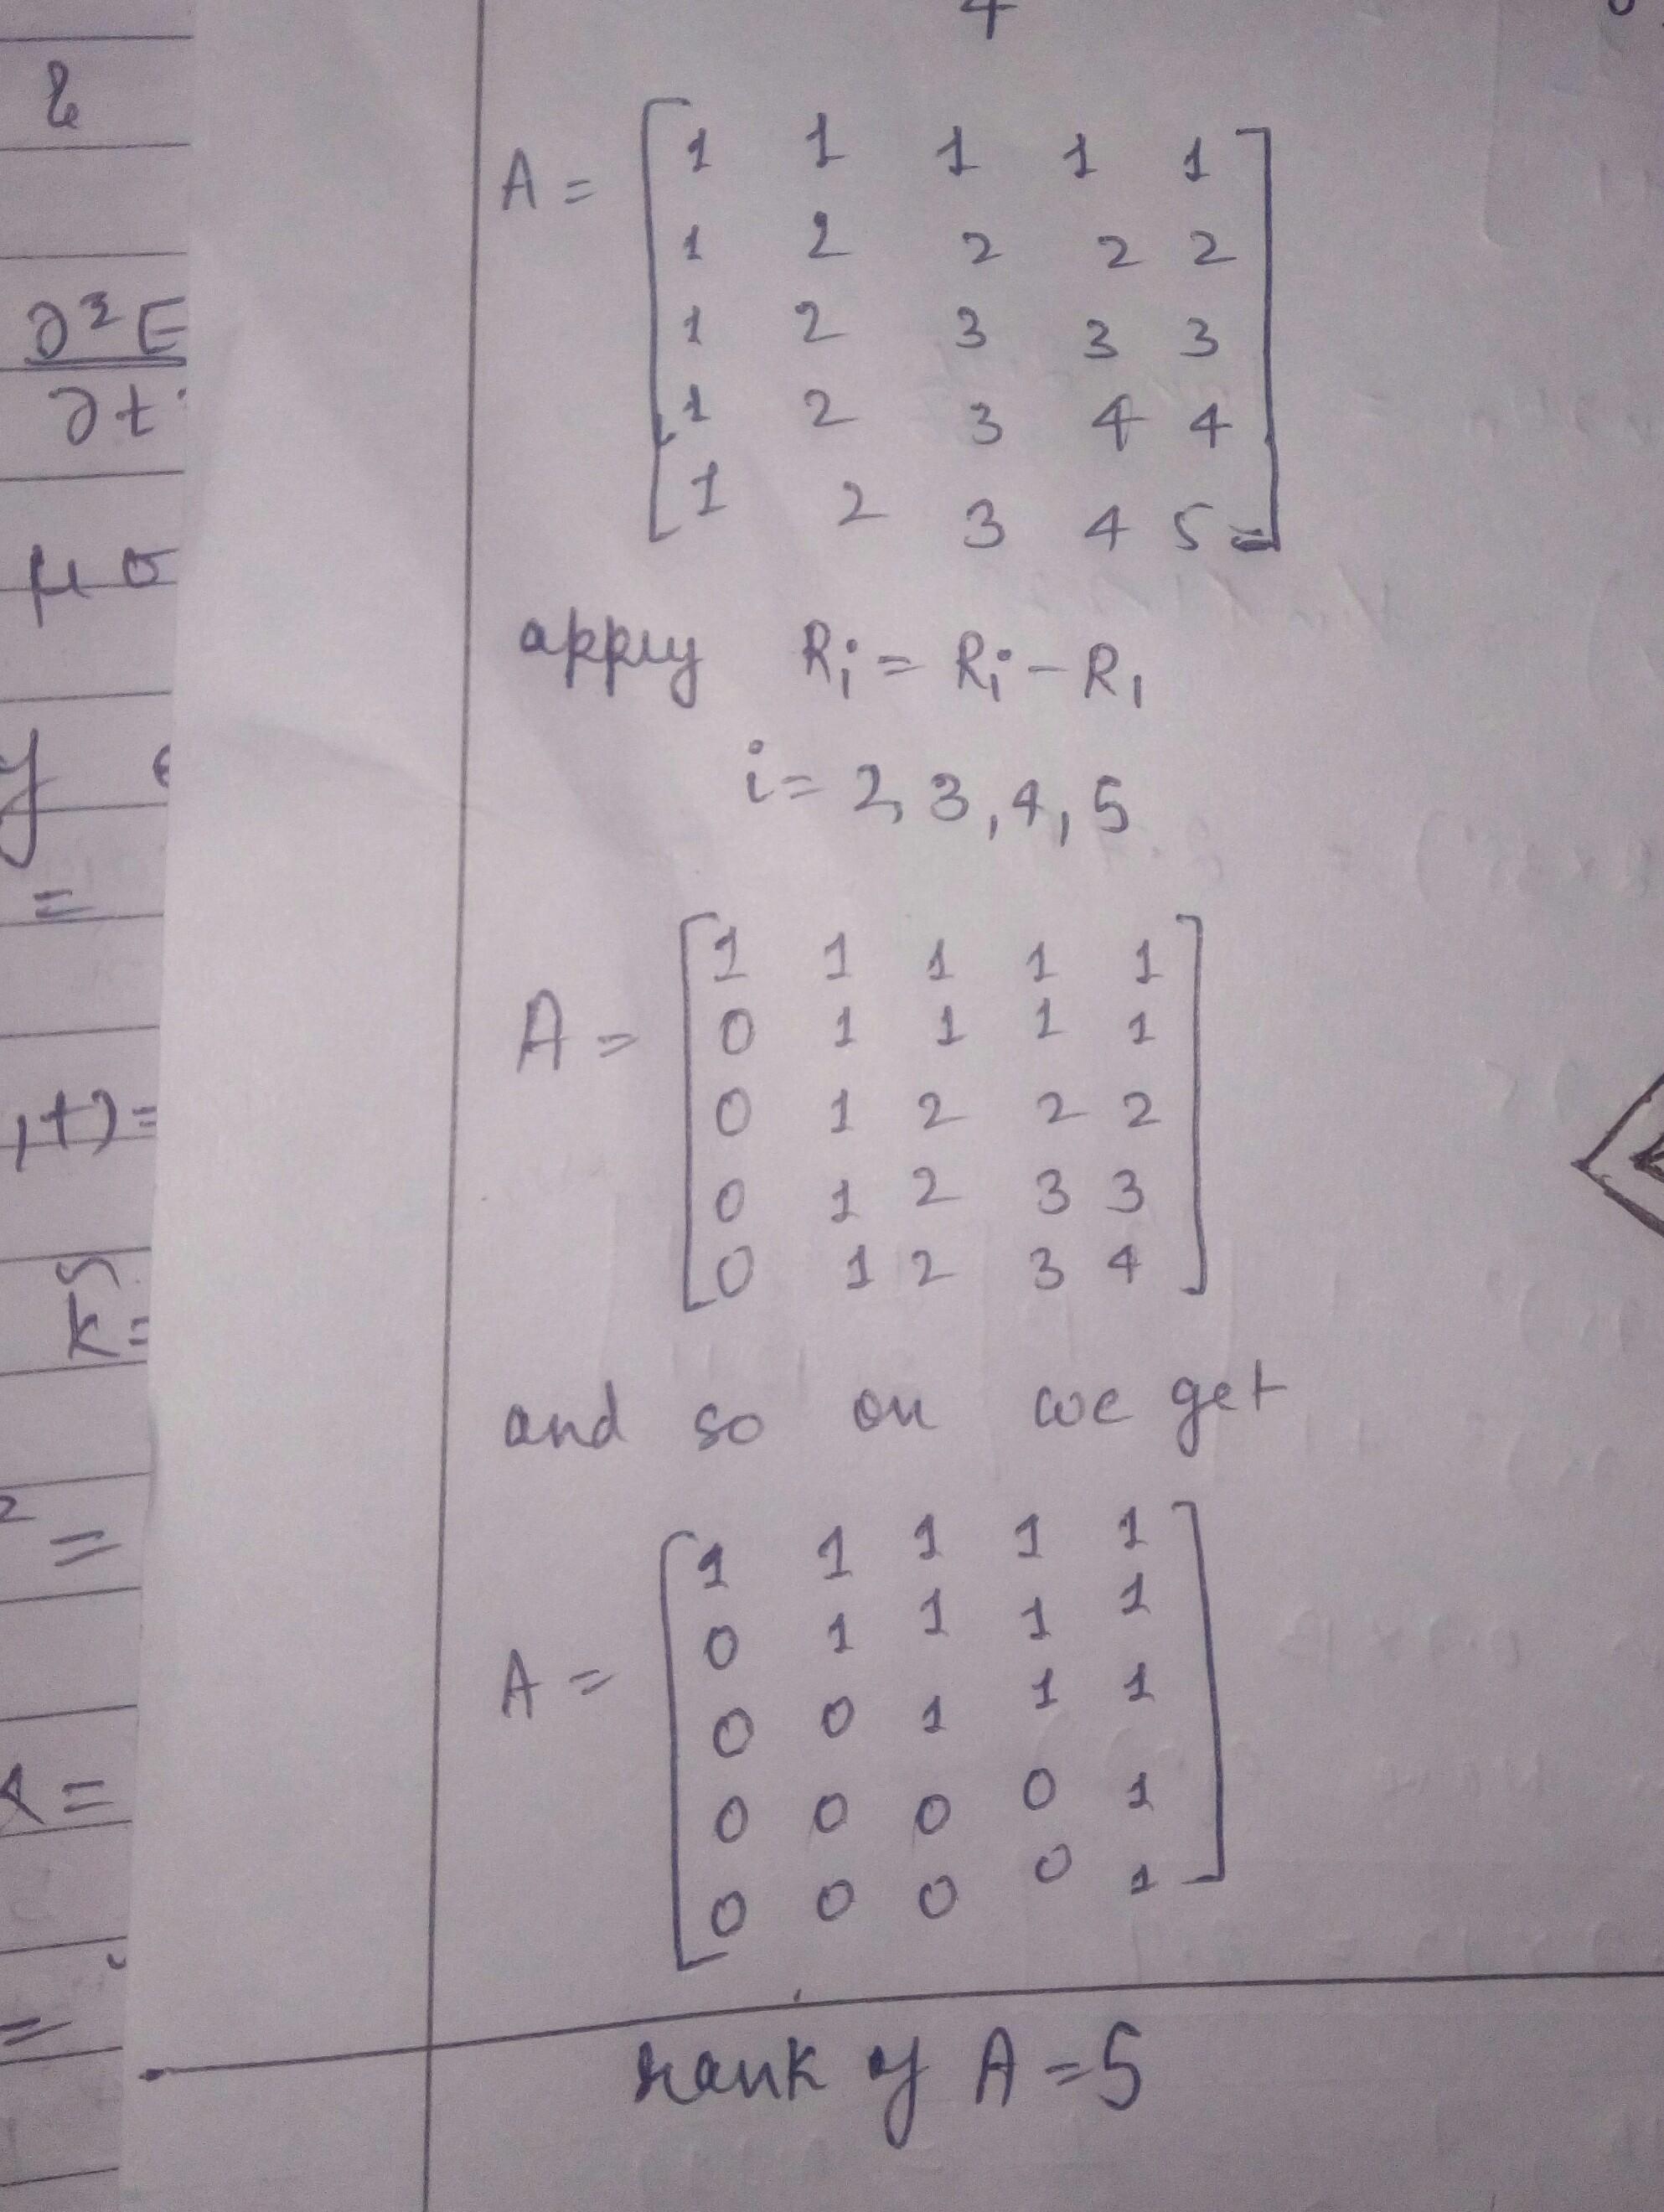 4
A = [ 1 1 1 1 1
1 2 2 2 2
1 2 3 3 3
1 2 3 4 4
1 2 3 4 5 ]
apply Ri = Ri - R1
i = 2, 3, 4, 5
A = [ 1 1 1 1 1
0 1 1 1 1
0 1 2 2 2
0 1 2 3 3
0 1 2 3 4 ]
and so on we get
A = [ 1 1 1 1 1
0 1 1 1 1
0 0 1 1 1
0 0 0 0 1
0 0 0 0 1 ]
rank of A = 5
&
∂²E
∂t
μσ
y
=
,t) =
k =
2 =
=
=